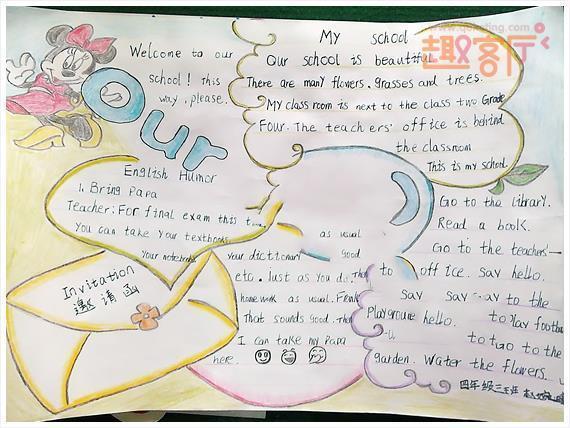 Welcome to our
school! this
way, please.
Our
My school
Our school is beautiful
There are many flowers, grasses and trees.
My class room is next to the class two Grade
Four. The teachers' office is behind
the classroom
This is my school.
English Humor
1. Bring Papa
Teacher: For final exam this
You can take your textbooks as usual
Your notebooks your dictionary good
etc. Just as you do
home work as usual.
That sounds good. The
I can take my Papa
here.
Invitation
邀请函
Go to the library.
Read a book.
Go to the teachers'
to office. say hello.
say say to the
Playgroune hello. to play footba
to tao to the
garden. Water the flowers.
四年级三班
www.quketing.com
趣客厅